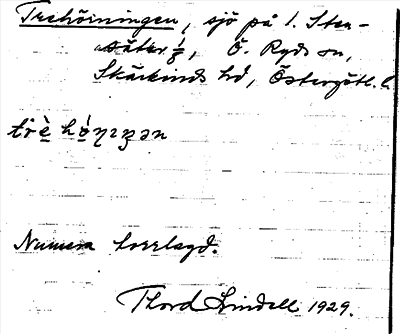 Trehörningen, sjö på 1. Sten-
säter 1/8, Ö. Ryds sn,
Skärkinds hd, Östergötl. l.
trè hó̤ɳɪŋən
Numera torrlagd.
Thord Lindell 1929.